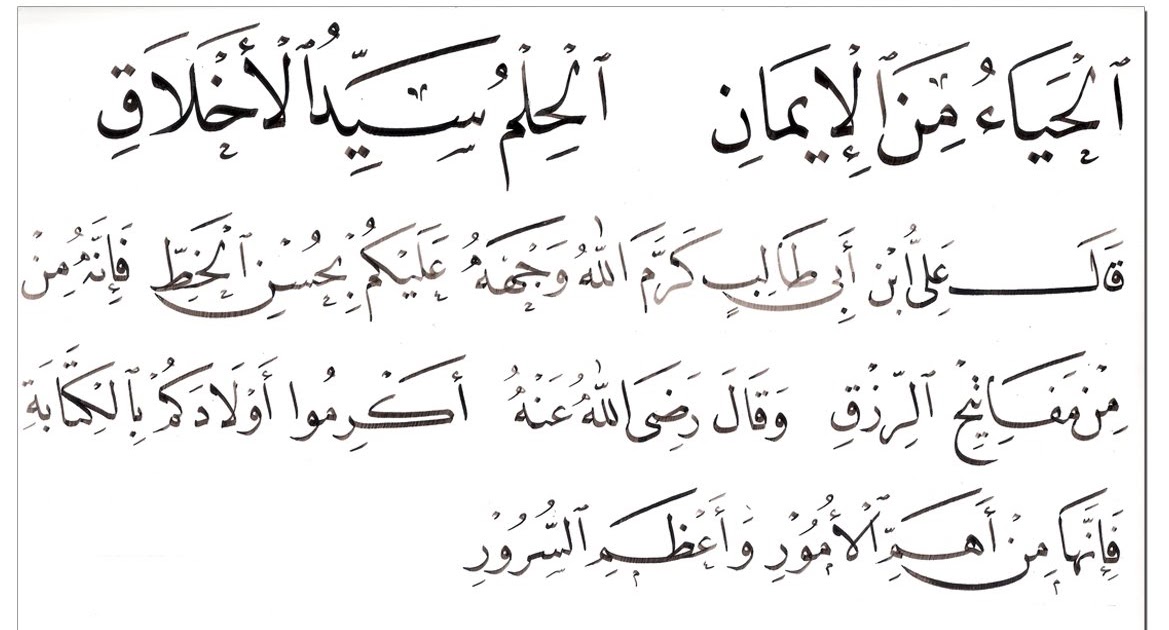 ٱلْحَيَاءُ مِنَ ٱلْإِيمَانِ ٱلْحِلْمُ سَيِّدُ ٱلْأَخْلَاقِ
قَالَ عَلِيُّ ٱبْنُ أَبِي طَالِبٍ كَرَّمَ اللّٰهُ وَجْهَهُ عَلَيْكُمْ بِحُسْنِ ٱلْخَطِّ فَإِنَّهُ مِنْ
مِنْ مَفَاتِيْحِ ٱلرِّزْقِ وَقَالَ رَضِىَ اللّٰهُ عَنْهُ أَكْرِمُوا أَوْلَادَكُمْ بِٱلْكِتَابَةِ
فَإِنَّهَا مِنْ أَهَمِّ ٱلْأُمُوْرِ وَأَعْظَمِ ٱلسُّرُورِ